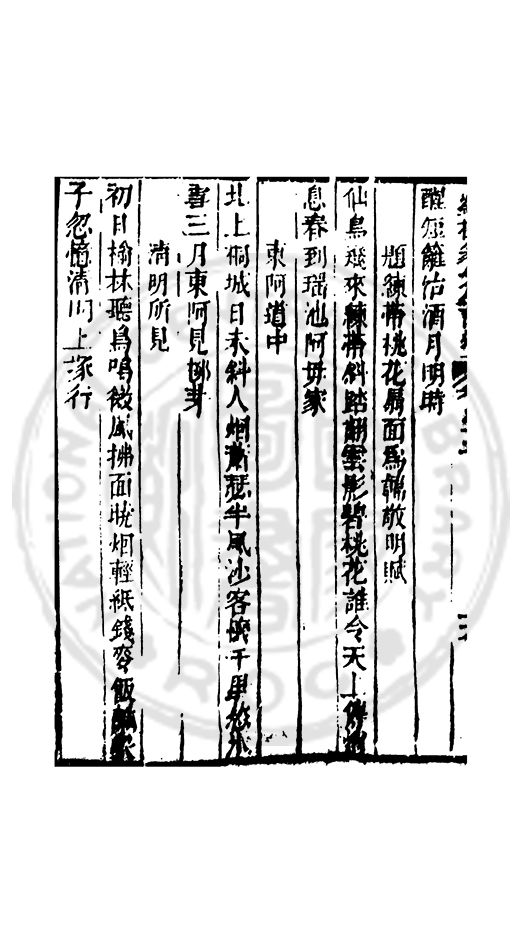 醒短籬沽酒月明時
題練帶桃花扇面為韓敬明賦
仙鳥幾來練帶斜踏翻雲影碧桃花誰令天上傳消
息春到瑶池阿母家
東阿道中
北上桐城日未斜人烟蕭瑟半風沙客懷千里愁
喜三月東阿見柳芽
清明所見
初日榆林聽鳥鳴微風拂面曉烟輕紙錢麥飯
子忽憶清明上塚行